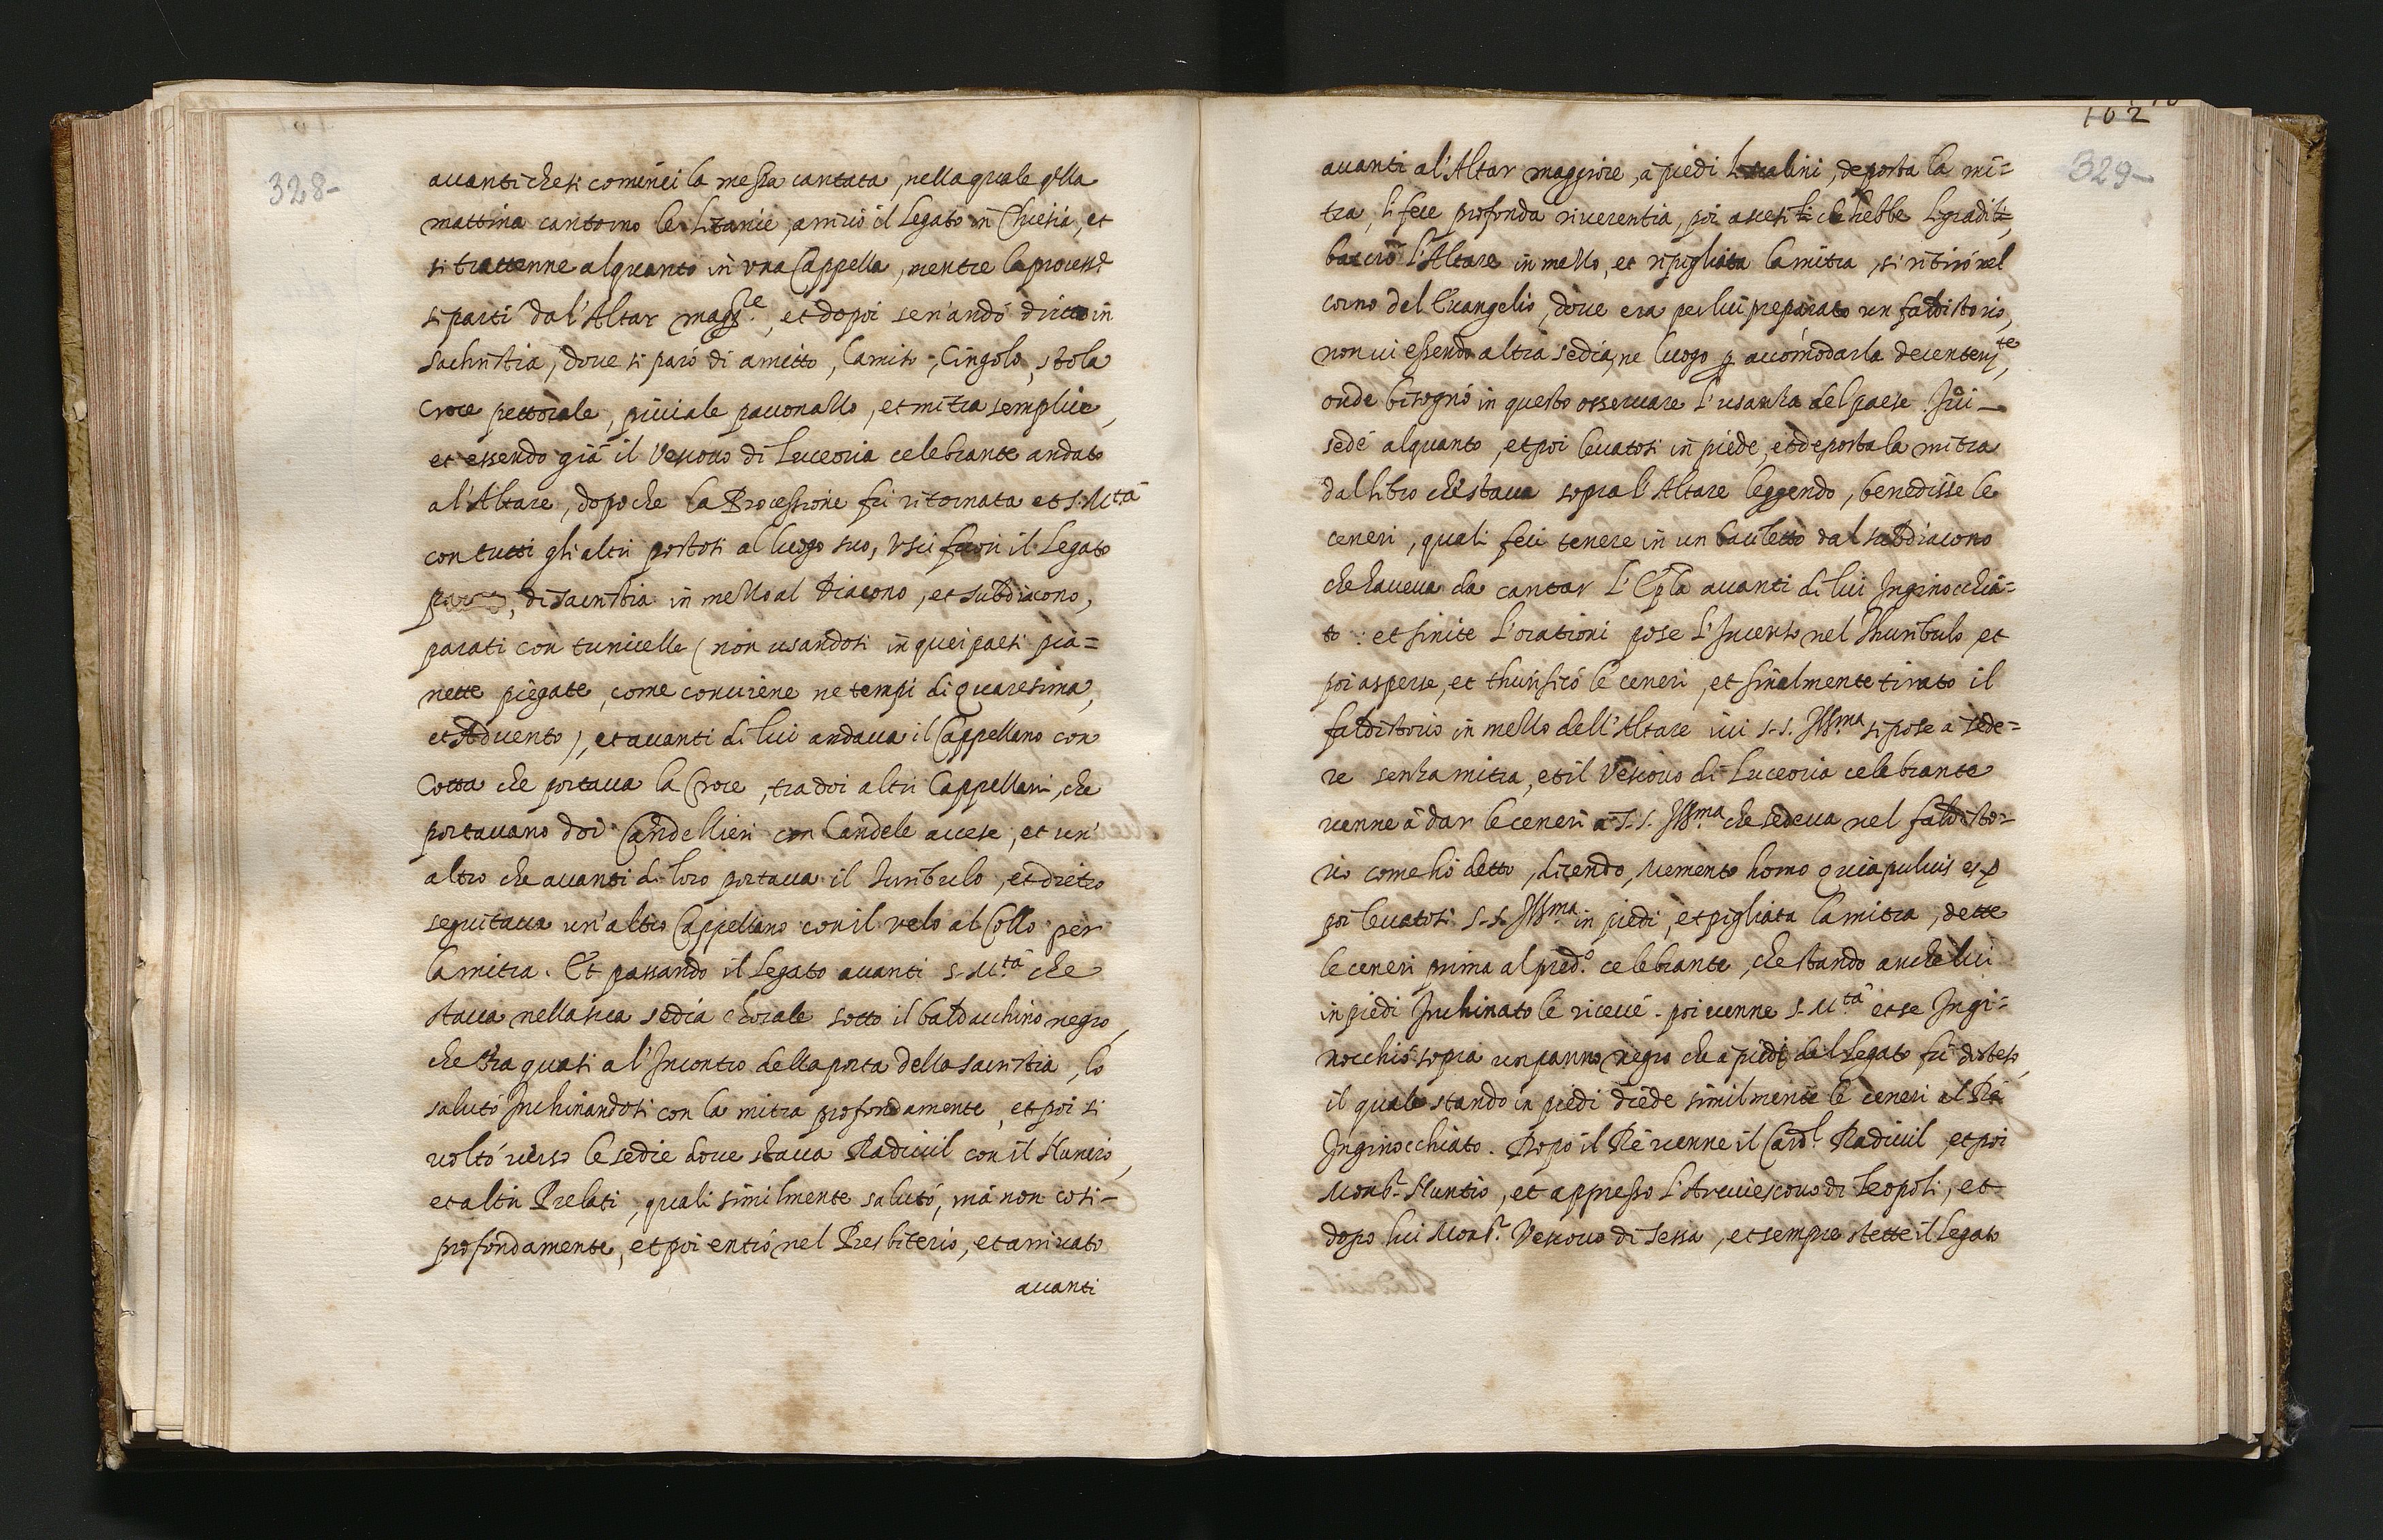 328-
auanti che si cominci la messa cantata, nella quale qlla
mattina cantorno le Litanie, arriuò il Legato in Chiesia, et
si trattenne alquanto in vna Cappella, mentre la process.e
si partì dal'Altar magg.re, et dopoi sen'andò dritto in
Sachristia, doue si parò di amitto, Camiso, Cingolo, stola
Croce pettorale, piuiale pauonazzo, et mitra semplice,
et essendo già il Vescouo di Luceoria celebrante andato
al'Altare, dopo che la Processione fù ritornata et S. M.tà
con tutti gli altri postosi al luogo suo, vscì fuori il Legato
di sacristia in mezzo al Diacono, et subdiacono,
parati con tunicelle (non usandosi in quei paesi pia=
nette piegate, come conuiene ne tempi di Quaresima,
et Aduento), et auanti di lui andaua il Cappellano con
Cotta che portaua la Croce, tra doi altri Cappellani, che
portauano doi Candellieri con Candele accese, et un'
altro che auanti di loro portaua il Turibulo, et dietro
seguitaua un'altro Cappellano con il velo al Collo per
la mitra. Et passando il Legato auanti S. M.tà che
staua nella sua sedia chorale sotto il baldacchino negro,
che stra quasi a l'Incontro della porta della sacristia, lo
salutò Inchinandosi con la mitra profondamente, et poi si
voltò verso le sedie doue staua Radiuil con il Nuntio,
et altri Prelati, quali similmente salutò, mà non così-
profondamente, et poi entrò nel Presbiterio, et arriuato
auanti
102
329-
auanti al'Altar maggiore, à piedi li scalini, deposta la mi=
tra, li fece profonda riuerentia, poi ascesi che hebbe li gradili,
bacciò l'Altare in mezzo, et ripigliata la mitra, si ritirò nel
corno del Euangelio, doue era per lui preparato un faldistorio,
non ui essendo altra sedia, ne luogo p accomodarla decentem.te,
onde bisognò in questo osseruare l'usanza del paese. Iui-
sedè alquanto, et poi leuatosi in piede, et deposta la mitra
dal libro che staua sopra l'Altare leggendo, benedisse le
ceneri, quali feci tenere in un bacileto dal subdiacono
che haueua da cantar l'Epla auanti di lui Inginocchia=
to: et finite l'orationi pose l'Incenso nel Thuribulo, et
poi asperse, et thurificò le ceneri, et finalmente tirato il
faldistorio in mezzo dell'Altare iui S. S. Ill.ma si pose à sede=
re senza mitra, et il Vescouo di Luceoria celebrante
venne à dar le ceneri à S. S. Ill.ma che sedeua nel faldisto=
rio come hò detto, dicendo, Memento homo quia puluis es
poi leuatosi S. S. Ill.ma in piedi, et pigliata la mitra, dette
le ceneri prima al pred.o celebrante, che stando anche lui
in piedi Inchinato le riceuè. poi venne S. M.tà et se Ingi=
nocchiò sopra un panno negro che à piedi del Legato fù disteso,
il quale stando in piedi diede similmente le ceneri al Rè
Inginocchiato. Dopò il Rè venne il Card.l Radiuil, et poi
Mons.r Nuntio, et appresso l'Arciuescouo di Leopoli, et
dopo lui Mons.r Vescouo di Sessa, et sempre stette il Legato